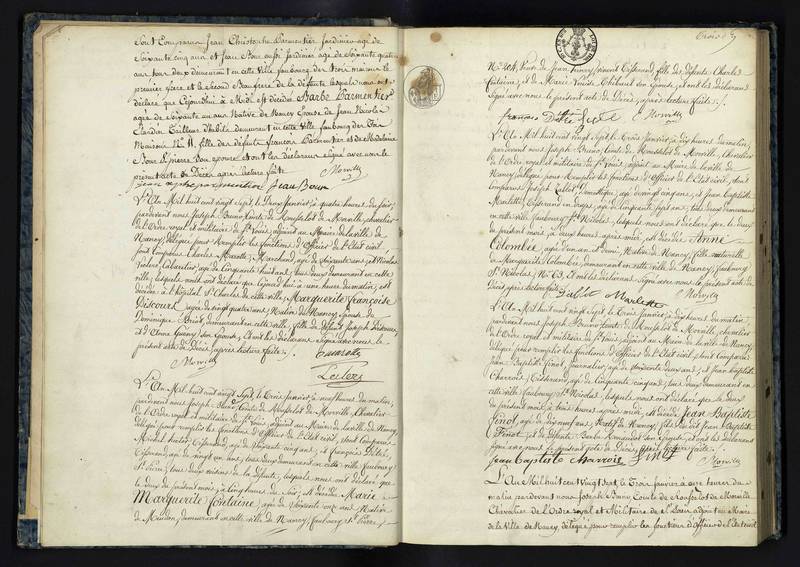 Sont Comparus Jean Christophe Parmentier Jardinier agé de
Soixante cinq ans et Jean Jardinier agé de Soixante quatre
ans tous deux demeurant en cette Ville faubourg des
premier frère et le Second Beaufrère de la défunte lesquels nous ont
déclaré que Cejourd'hui à Midi est décédée Barbe Parmentier
agée de Soixante un ans Native de Nancy Epouse de Jean Nicolas
Tailleur d'habits demeurant en cette ville faubourg des
Maison No. 11, fille des défunts françois Parmentier et de Madelaine
Son épouse et ont les déclarans Signé avec nous le
présent acte de Décès après lecture faite
Jean Parmentier Jean
L'An Mil huit cent vingt sept le Deux Janvier, à quatre heures du soir,
pardevant nous Joseph Bruno Comte de Rousselot de Morville, chevalier
de l'Ordre royal et militaire de St. Louis, adjoint au Maire de la ville de
Nancy, délégué pour Remplir les fonctions d'Officier de l'Etat civil
Sont Comparus Charles Marotte, Marchand, agé de Soixante ans, et Nicolas
Cabaretier, agé de Cinquante huit ans, tous deux demeurant en cette
ville, lesquels nous ont déclaré que à une heure du matin, est
décédée à l'hôpital St. Charles de cette ville, Marguerite Françoise
Discourt, agée de vingt quatre ans, Native de Nancy, Epouse de
Dominique demeurant en cette ville, fille de défunt Joseph Discourt,
et d'Anne son Epouse, et ont les déclarans Signé avec nous le
présent acte de Décès, après lecture faite.
Morville
Leclerc
L'An Mil huit cent vingt Sept, le Trois Janvier à neuf heures du matin,
pardevant nous Joseph Bruno Comte de Rousselot de Morville, Chevalier
de l'Ordre royal et militaire de St. Louis, adjoint au Maire de la ville de Nancy
délégué pour remplir les fonctions d'Officier de l'Etat civil, sont Comparus
Michel Tisserand, agé de Cinquante cinq ans, et François
Tisserand, agé de vingt un ans, tous deux demeurant en cette ville, faubourg
St. Pierre, tous deux voisins de la défunte, lesquels nous ont déclaré que
le deux du présent mois, à Cinq heures du soir, est décédée Marie
Marguerite Fontaine, agée de Soixante onze ans, Native
de demeurant en cette ville de Nancy, faubourg St. Pierre,
Trois
No. 204, Veuve de Jean Tisserand, fille des défunts Charles
fontaine, et de Marie Thibaut Son Epouse, et ont les déclarans
Signé avec nous le présent acte de Décès, après lecture faite.
françois
Morville
L'An Mil huit cent vingt Sept le Trois Janvier à dix heures du matin,
pardevant nous Joseph Bruno Comte de Rousselot de Morville, chevalier
de l'Ordre royal et militaire de St. Louis, adjoint au Maire de la ville de
Nancy, délégué pour Remplir les fonctions d'Officier de l'Etat civil, sont
Comparus Joseph domestique, agé de vingt cinq ans, et Jean Baptiste
Marlette, Tisserand en draps, agé de Cinquante sept ans, tous deux demeurant
en cette ville faubourg St. Nicolas, lesquels nous ont déclaré que le deux
du présent mois, à deux heures après midi, est décédée Anne
Colombée, agée d'un an et demi, Native de Nancy, fille naturelle
de Marguerite Colombée, demeurant en cette ville de Nancy, faubourg
St. Nicolas, No. 63, et ont les déclarans Signé avec nous le présent acte de
Décès après lecture faite.
Marlette Morville
L'An Mil huit cent vingt sept, le Trois Janvier, à dix heures du matin,
pardevant nous Joseph Bruno Comte de Rousselot de Morville, chevalier de l'Ordre
royal et militaire de St. Louis, adjoint au Maire de la ville de Nancy,
délégué pour remplir les fonctions d'Officier de l'Etat civil, sont Comparus
Jean Baptiste Finot, Journalier, agé de Soixante deux ans, et Jean Baptiste
Tisserand, agé de Cinquante cinq ans, tous deux demeurant en
cette ville faubourg St. Nicolas, lesquels nous ont déclaré que le deux
du présent mois, à trois heures après midi, est décédé Jean Baptiste
Finot, agé de dix neuf ans, Natif de Nancy, fils de dit Jean Baptiste
Finot, et de défunte Barbe Son Epouse, et ont les déclarans
Signé avec nous le présent acte de Décès, après lecture faite.
Jean Baptiste Finot Morville
L'An Mil huit cent Vingt Sept, le Trois Janvier à onze heures du
matin pardevant nous Joseph Bruno Comte de Rousselot de Morville
Chevalier de l'Ordre royal et Militaire de St. Louis adjoint au Maire
de la Ville de Nancy délégué pour remplir les fonctions d'Officier de l'Etat civil